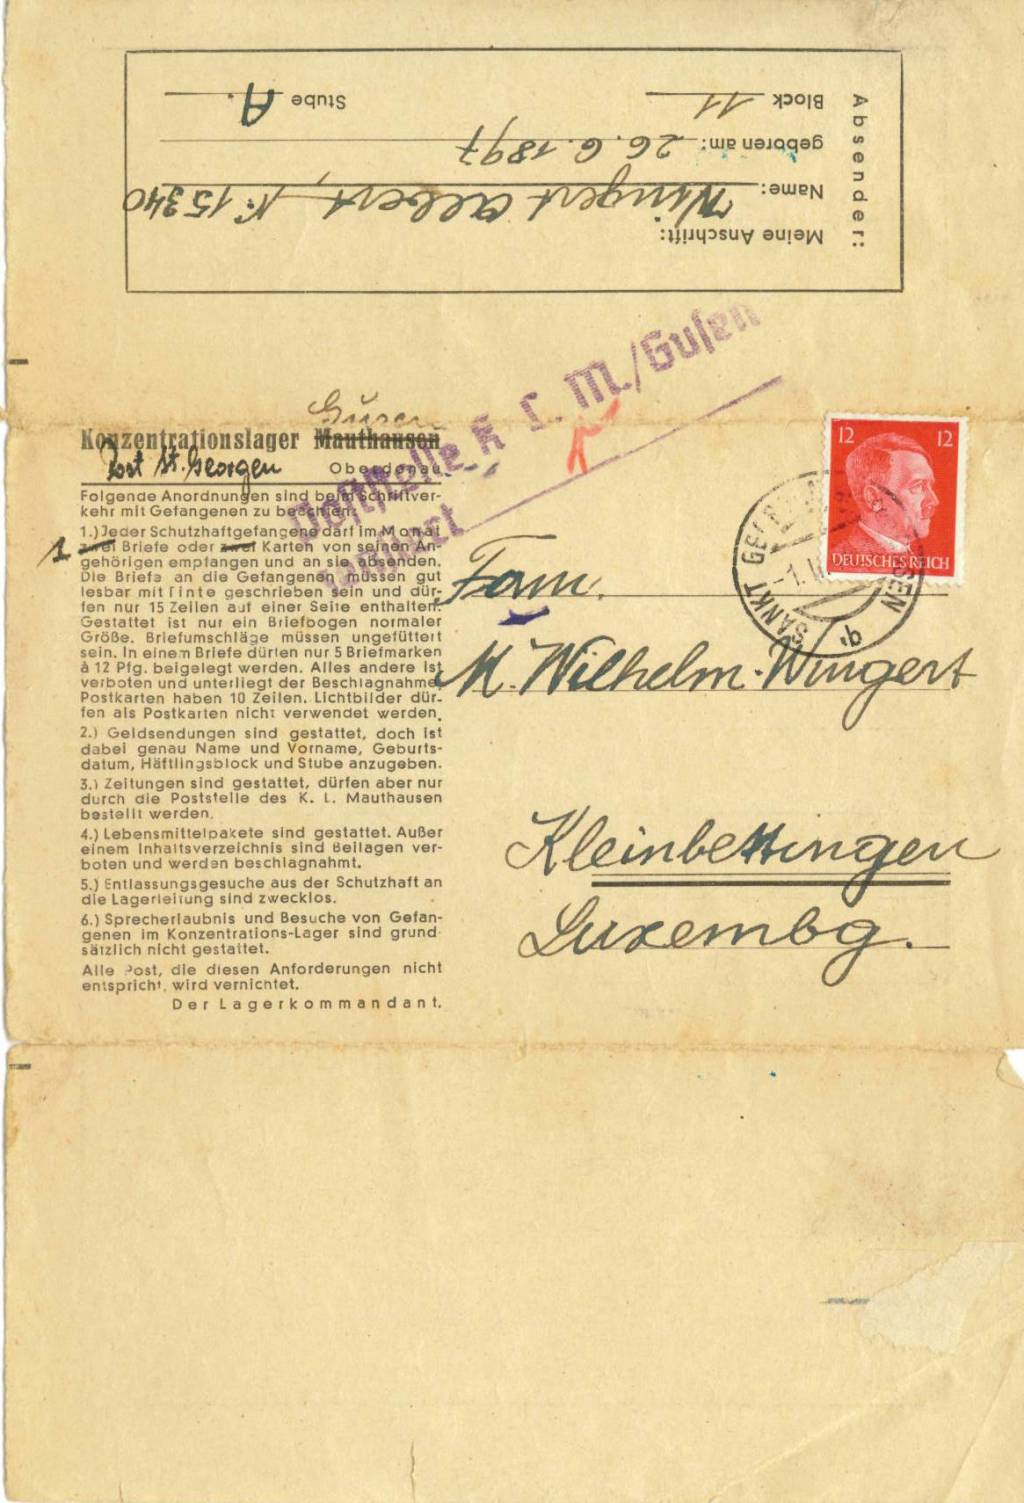 Absender:
Meine Anschrift:
Name: Wingert Albert, N: 15340
geboren am: 26.6.1897
Block 11 Stube A.
Poststelle K L. M./Gusen
Gusen
Konzentrationslager Mauthausen
Post St. Georgen Oberdonau
Folgende Anordnungen sind beim Schriftver-
kehr mit Gefangenen zu beachten:
1.) Jeder Schutzhaftgefangene darf im Monat
1 zwei Briefe oder zwei Karten von seinen An-
gehörigen empfangen und an sie absenden.
Die Briefe an die Gefangenen müssen gut
lesbar mit Tinte geschrieben sein und dür-
fen nur 15 Zeilen auf einer Seite enthalten.
Gestattet ist nur ein Briefbogen normaler
Größe. Briefumschläge müssen ungefüttert
sein. In einem Briefe dürfen nur 5 Briefmarken
à 12 Pfg. beigelegt werden. Alles andere ist
verboten und unterliegt der Beschlagnahme.
Postkarten haben 10 Zeilen. Lichtbilder dür-
fen als Postkarten nicht verwendet werden.
2.) Geldsendungen sind gestattet, doch ist
dabei genau Name und Vorname, Geburts-
datum, Häftlingsblock und Stube anzugeben.
3.) Zeitungen sind gestattet, dürfen aber nur
durch die Poststelle des K. L. Mauthausen
bestellt werden.
4.) Lebensmittelpakete sind gestattet. Außer
einem Inhaltsverzeichnis sind Beilagen ver-
boten und werden beschlagnahmt.
5.) Entlassungsgesuche aus der Schutzhaft an
die Lagerleitung sind zwecklos.
6.) Sprecherlaubnis und Besuche von Gefan-
genen im Konzentrations-Lager sind grund-
sätzlich nicht gestattet.
Alle Post, die diesen Anforderungen nicht
entspricht, wird vernichtet.
Der Lagerkommandant.
12 12
DEUTSCHES REICH
SANKT b
Fam.
M. Wilhelm-Wingert
Kleinbettingen
Luxembg.